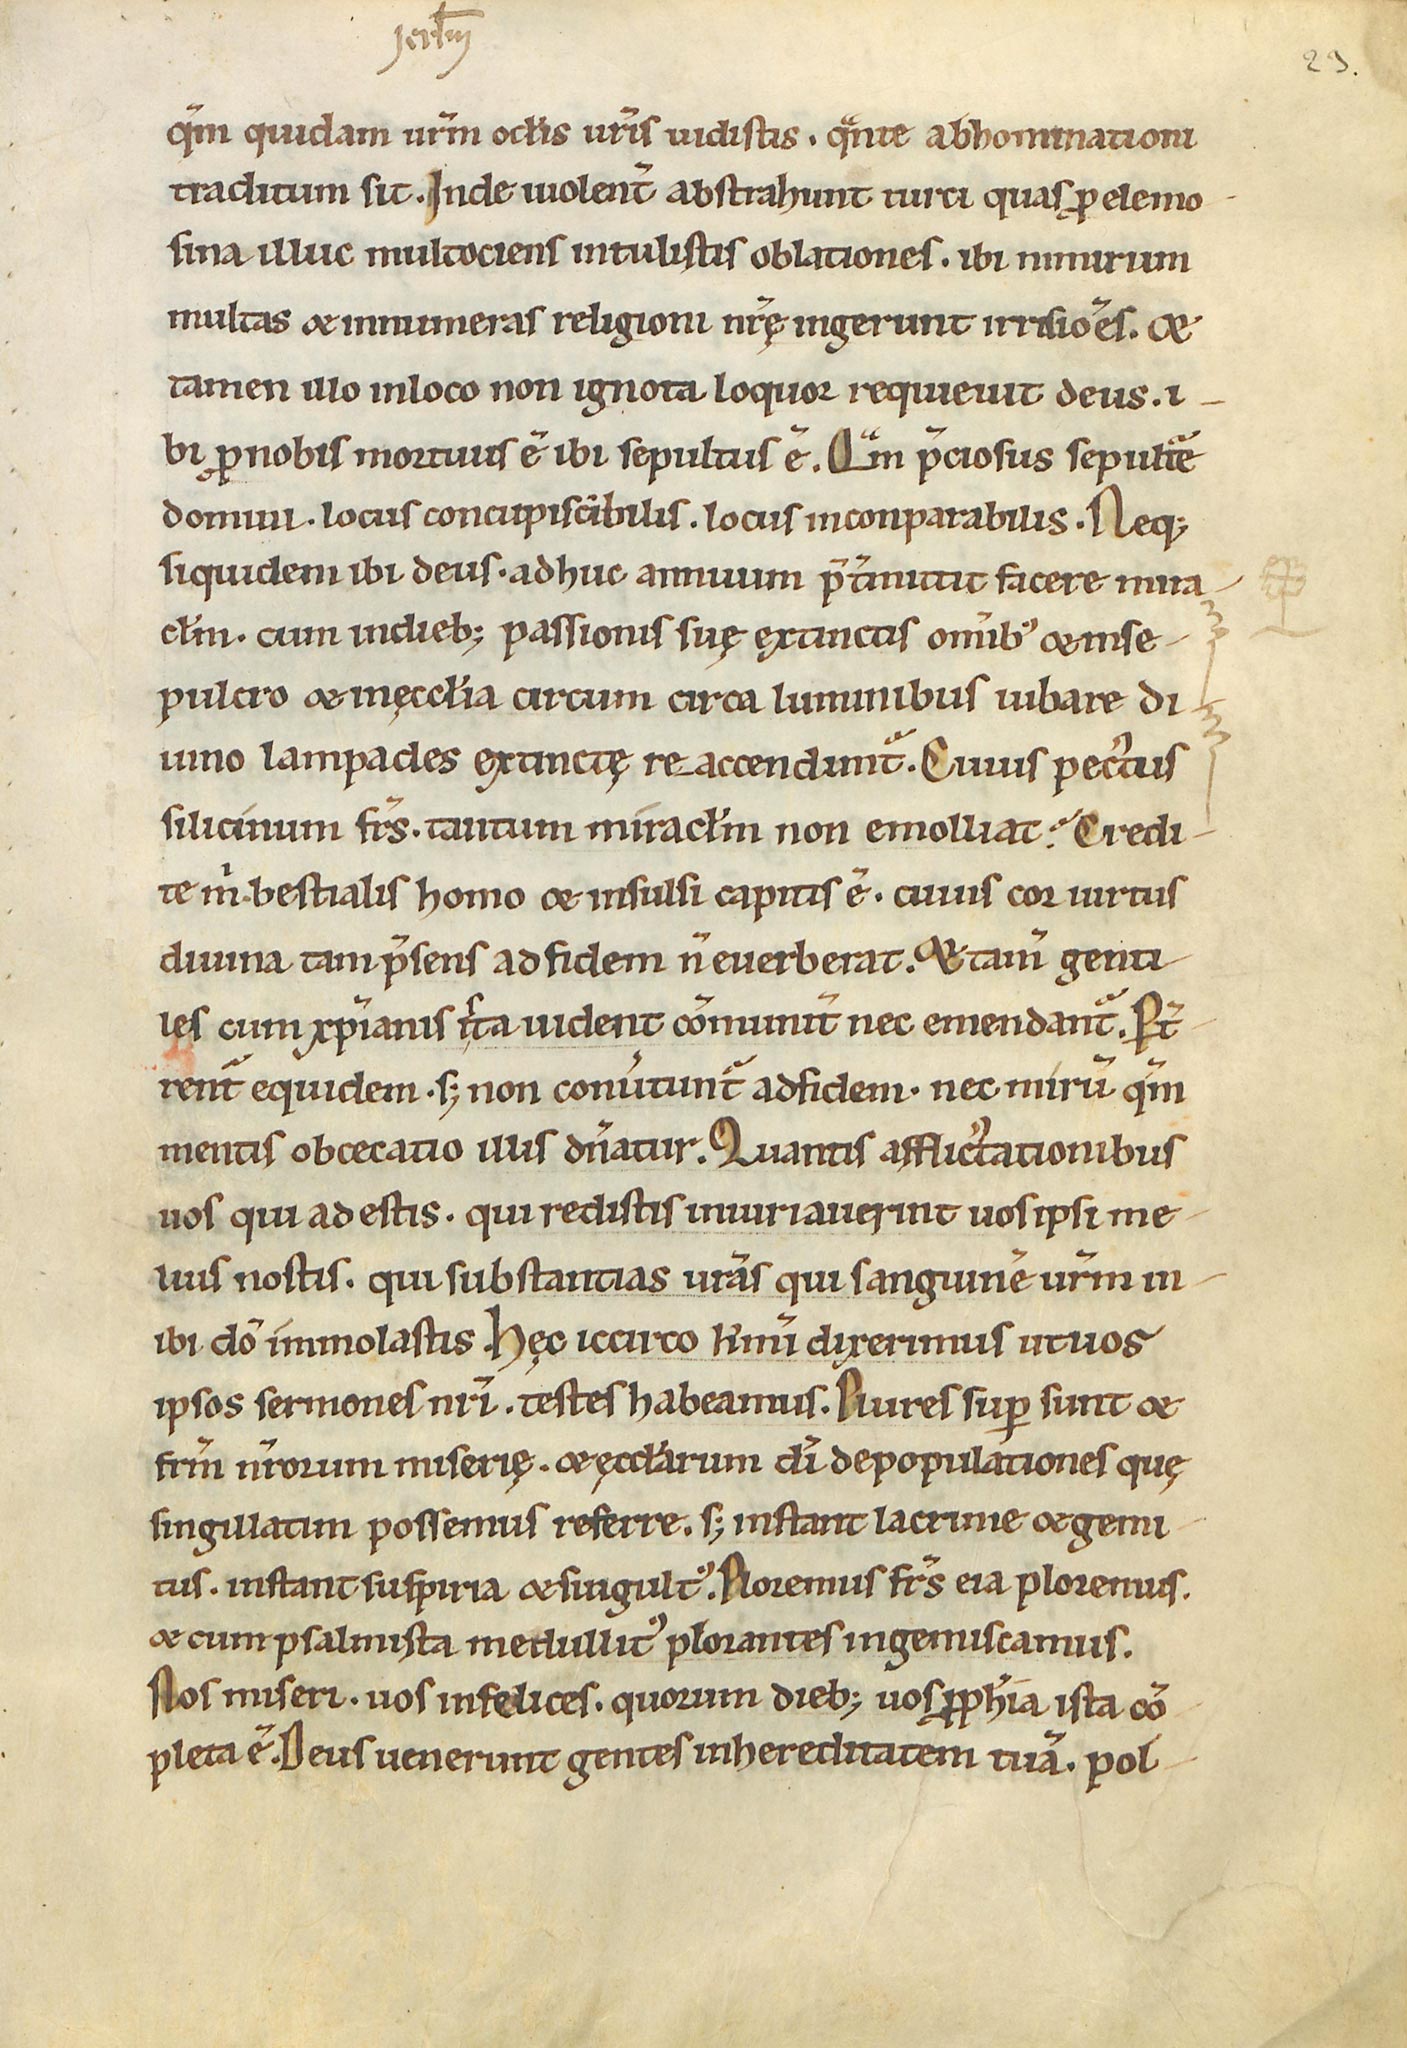 Jerłm
29.
q̄m quidam ur̄m ocłis ur̄is uidistis. qᵃnte abhominationi
traditum sit. Inde uiolent̄ abstrahunt turci quas ꝓ elemo-
sina illuc multociens intulistis oblationes. ibi nimirum
multas & innumeras religioni nr̄ę ingerunt irrisiōes. &
tamen illo inloco non ignota loquor requieuit deus. i-
bi ꝓ nobis mortuus ē ibi sepultus ē. Qᵃm p̄ciosus sepultᵉ
domini. locus concupisc̄ibilis. locus inconparabilis. Neq;
siquidem ibi deus. adhuc annuum p̄t̄misit facere mira-
cłm. cum indieb; passionis suę extinctis omīb᾽ & inse-
pulcro & inęccłia circum circa luminibus iubare di-
uino lampades extinctę re accendunt᷑. Cuius pectus
silicinum fr̄s. tantum miracłm non emolliat? Credi-
te m̄. bestialis homo & insulsi capitis ē. cuius cor uirtus
diuina tam p̄sens ad fidem n̄ euerberat. & tam̄ genti
les cum xp̄ianis ısta uident cōmunit̄ nec emendant᷑. P̄t̄-
rent᷑ equidem. s; non conūtunt᷑ adfidem. nec mirū q̄m
mentis obcecatio illis dn̄atur. Quantis afflictationibus
uos qui adestis. qui redistis iniuriauerint uosipsi me-
lius nostis. qui substantias ur̄as qui sanguinē ur̄m in-
ibi dō immolastis. Hęc iccirco kīmi dixerimus ut uos
ipsos sermones nr̄i. testes habeamus. Plures suꝑ sunt &
fr̄m nr̄orum miserię. & ęccłarum dī depopulationes quę
singillatim possemus referre. s; instant lacrime & gemi-
tus. instant suspiria & singult᾽. Ploremus fr̄s eia ploremus.
& cum psalmista medullit᾽ plorantes ingemiscamus.
Nos miseri. nos infelices. quorum dieb; uos ꝓph̄ia ista cō
pleta ē. Deus uenerunt gentes inhereditatem tuā. pol-